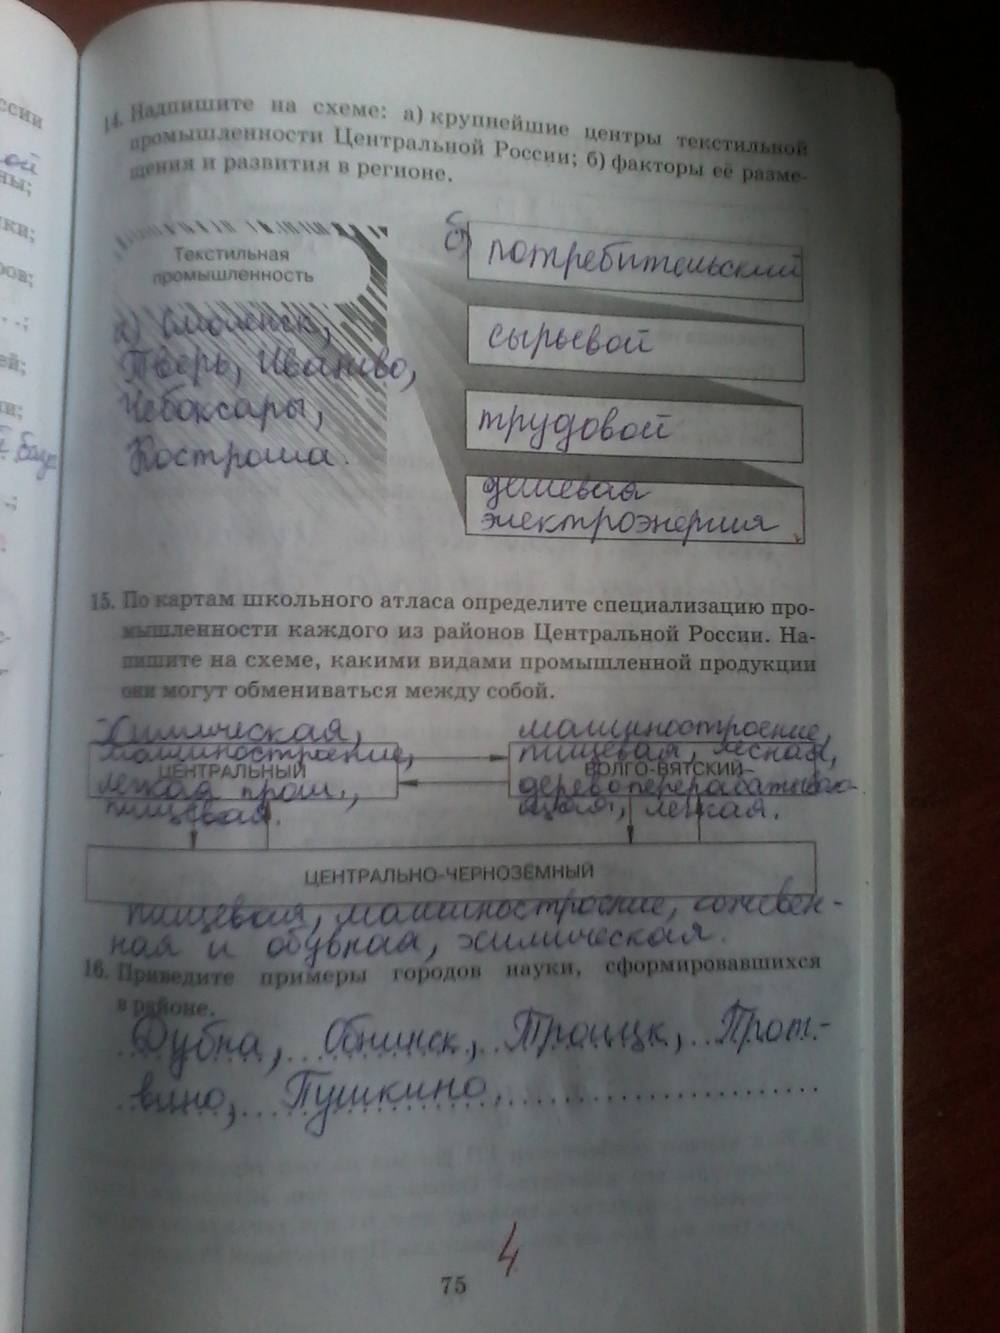 ссии
ой
ны;
ики;
ров;
ей;
ии;
14. Надпишите на схеме: а) крупнейшие центры текстильной
промышленности Центральной России; б) факторы её разме-
щения и развития в регионе.
Текстильная
промышленность
а) Смоленск,
Тверь, Иваново,
Чебоксары,
Кострома.
б)
потребительский
сырьевой
трудовой
дешёвая
электроэнергия
15. По картам школьного атласа определите специализацию про-
мышленности каждого из районов Центральной России. На-
пишите на схеме, какими видами промышленной продукции
они могут обмениваться между собой.
Химическая,
машиностроение,
ЦЕНТРАЛЬНЫЙ
легкая пром.,
пищевая.
машиностроение,
пищевая, лесная,
ВОЛГО-ВЯТСКИЙ
деревоперерабатываю-
щая, легкая.
ЦЕНТРАЛЬНО-ЧЕРНОЗЁМНЫЙ
пищевая, машиностроение, кожевен-
ная и обувная, химическая.
16. Приведите примеры городов науки, сформировавшихся
в районе.
Дубна, Обнинск, Троицк, Прот-
вино, Пушкино,
4
75